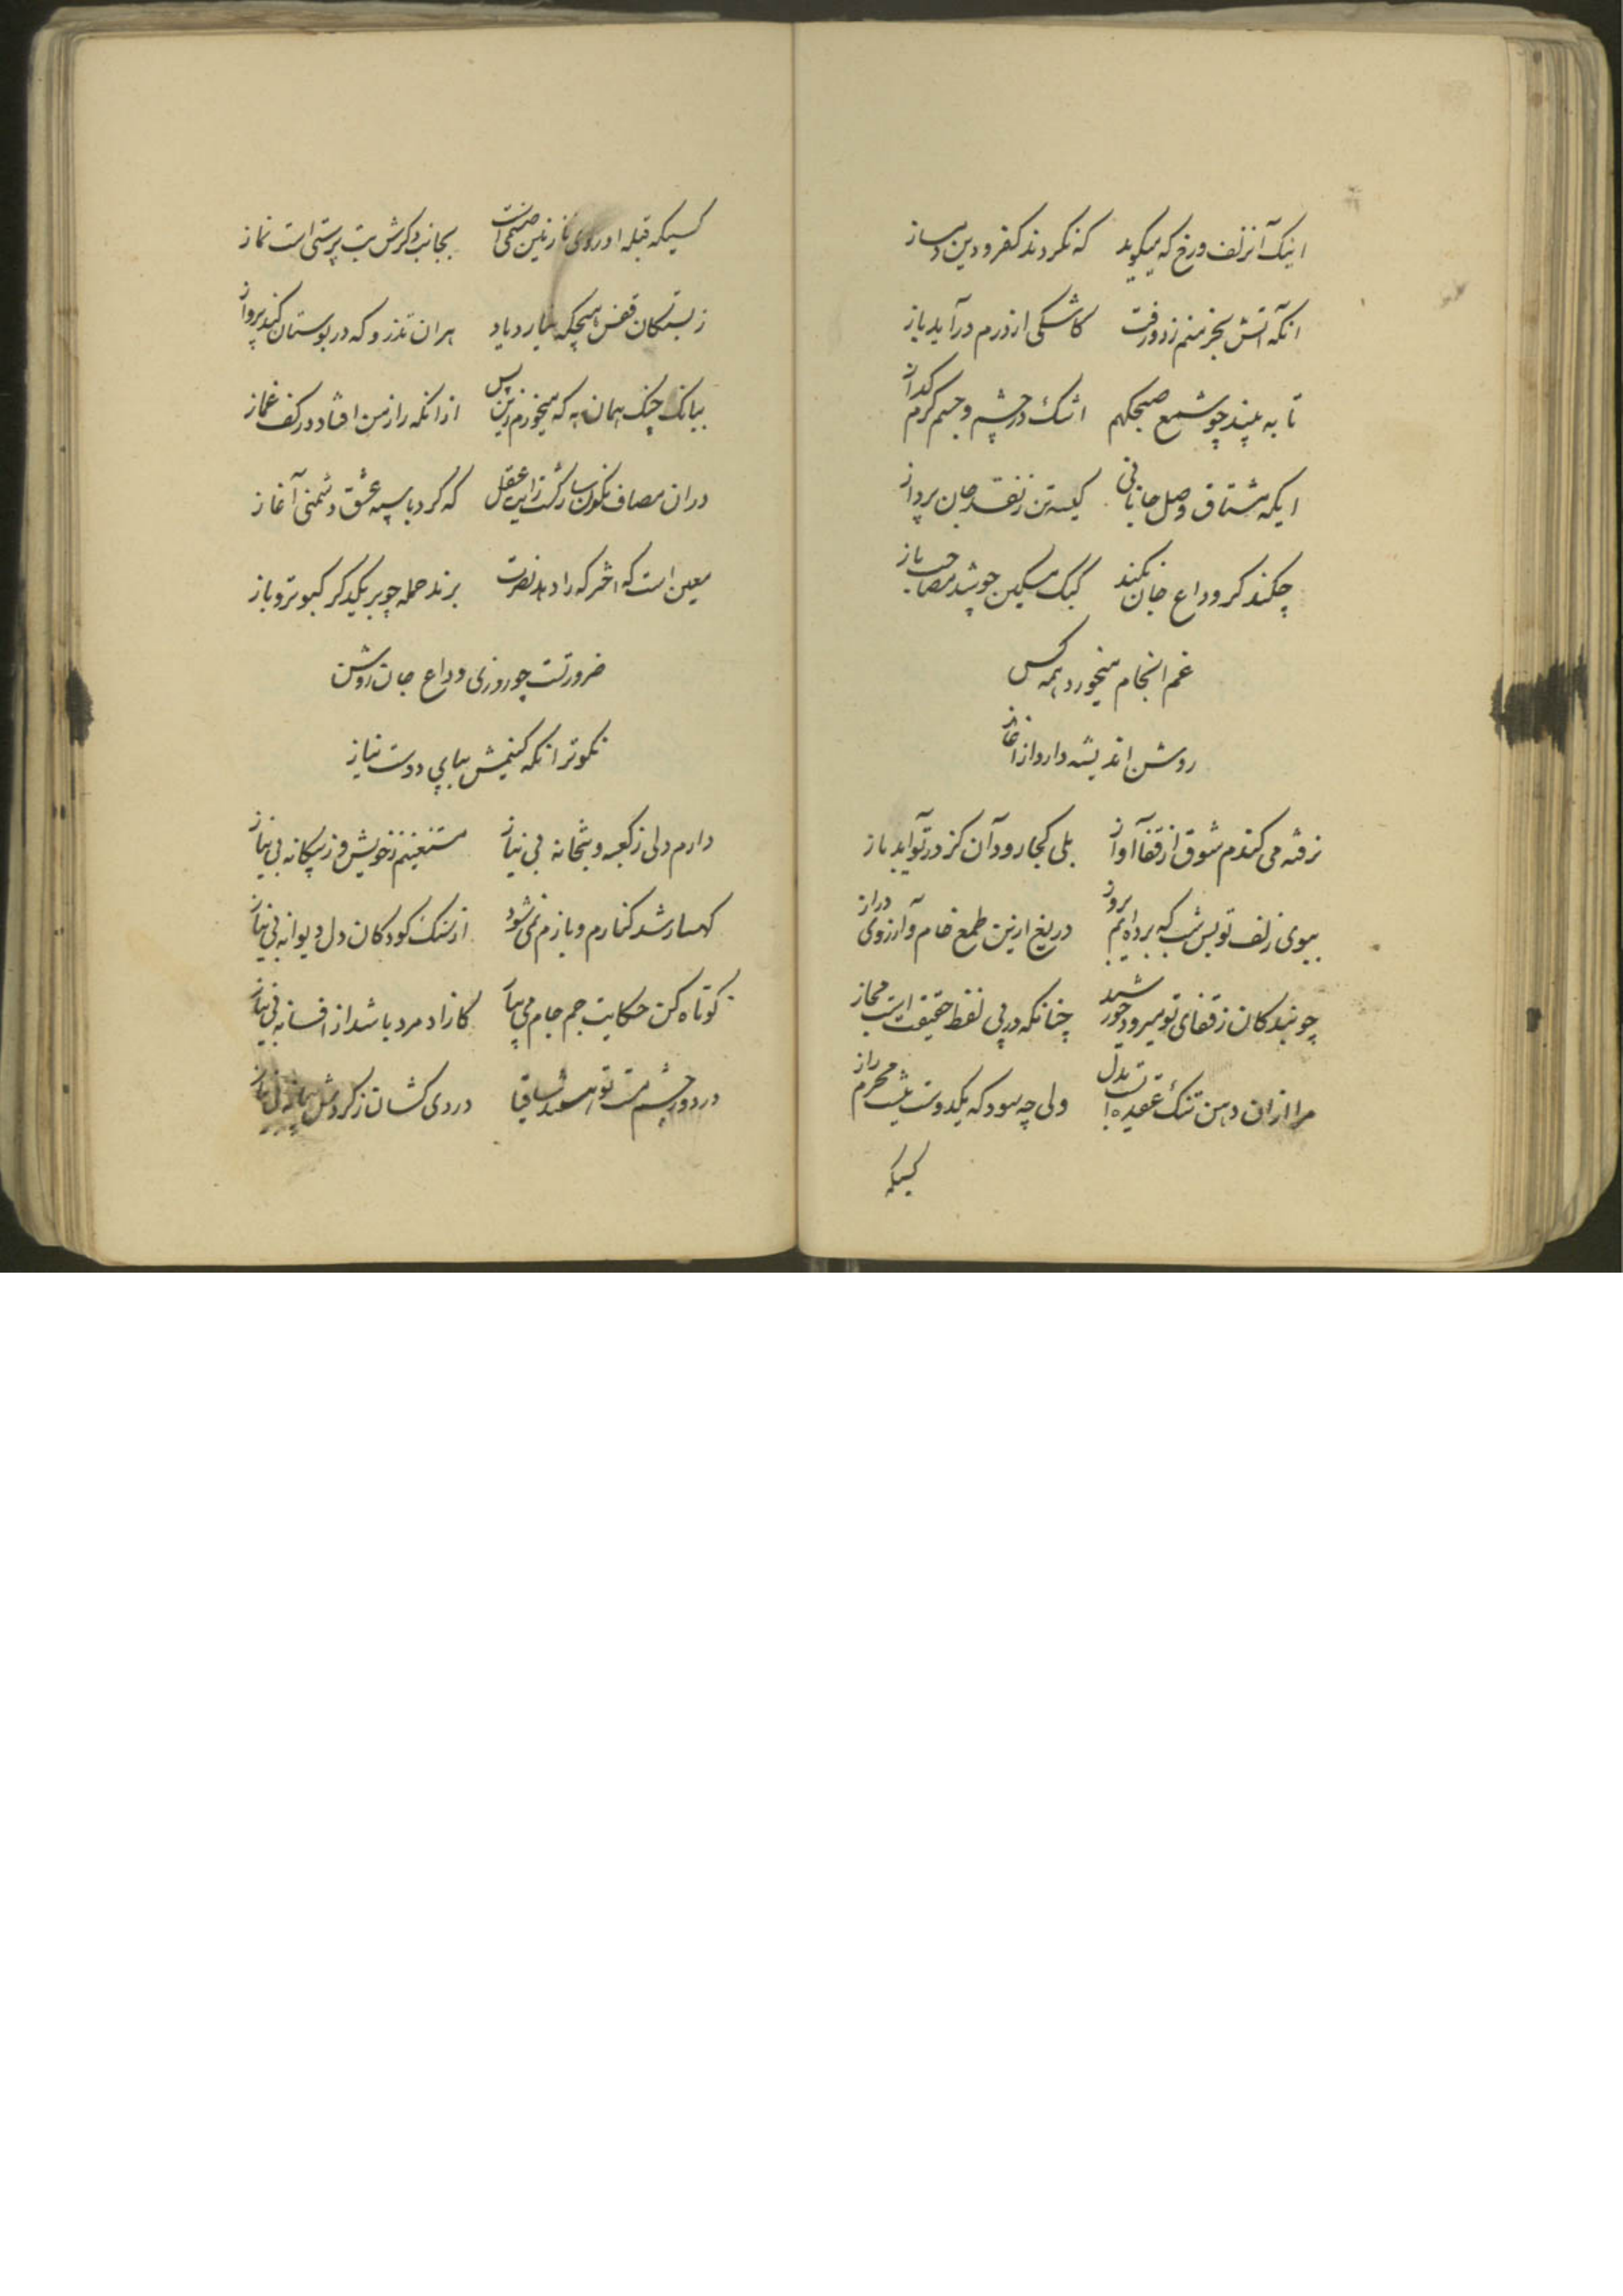 اینک آنزلف ورخ که میگوید که نکردند کفر و دین دمساز
انکه آتش بخرمنم زد و رفت کاشکی از درم درآید باز
تا به بیند چو شمع صبحگهم اشک در چشم و جسم گرم گداز
ایکه مشتاق وصل جانانی کیسه تن ز نقد جان پرداز
چکند گر وداع جان نکند کبک مسکین چو شد مصاحب باز
غم انجام میخورد همه کس
روشن اندیشه دارد از آغاز
نرفته می کندم شوق از قفا آواز بلی کجا رود آن کز در تو آید باز
ببوی زلف تو بس شب که برده ایم بروز دریغ ازین طمع خام و آرزوی دراز
چو بندگان ز قفای تو میرود خورشید چنانکه در پی لفظ حقیقت است مجاز
مرا ازان دهن تنگ عقده است بدل ولی چه سود که یکدوست نیست محرم راز
کسیکه
کسیکه قبله او روی نازنین صنمی است بجانب دگرش بت پرستی است نماز
ز بستگان قفس هیچگه نیارد یاد هران تذرو که در بوستان کند پرواز
ببانک چنک همان به که میخورم زین پس ازانکه راز من افتاد در کف غماز
دران مصاف نگونسار گشت رایت عقل که کرد با سپه عشق دشمنی آغاز
معین است که آخر که را دهد نصرت برند حمله چو بر یکدگر کبوتر و باز
ضرورتست چو روزی وداع جان روشن
نکوتر انکه کنیمش بپای دوست نیاز
دارم دلی ز کعبه و بتخانه بی نیاز مستغنیم ز خویش و ز بیگانه بی نیاز
کهسار شد کنارم و بازم نمی شود از سنک کودکان دل دیوانه بی نیاز
کوتاه کن حکایت جم جام می بیار کازاد مرد باشد از افسانه بی نیاز
در دور چشم مست تو ساقیا دردی کشان ز گردش پیمانه بی نیاز